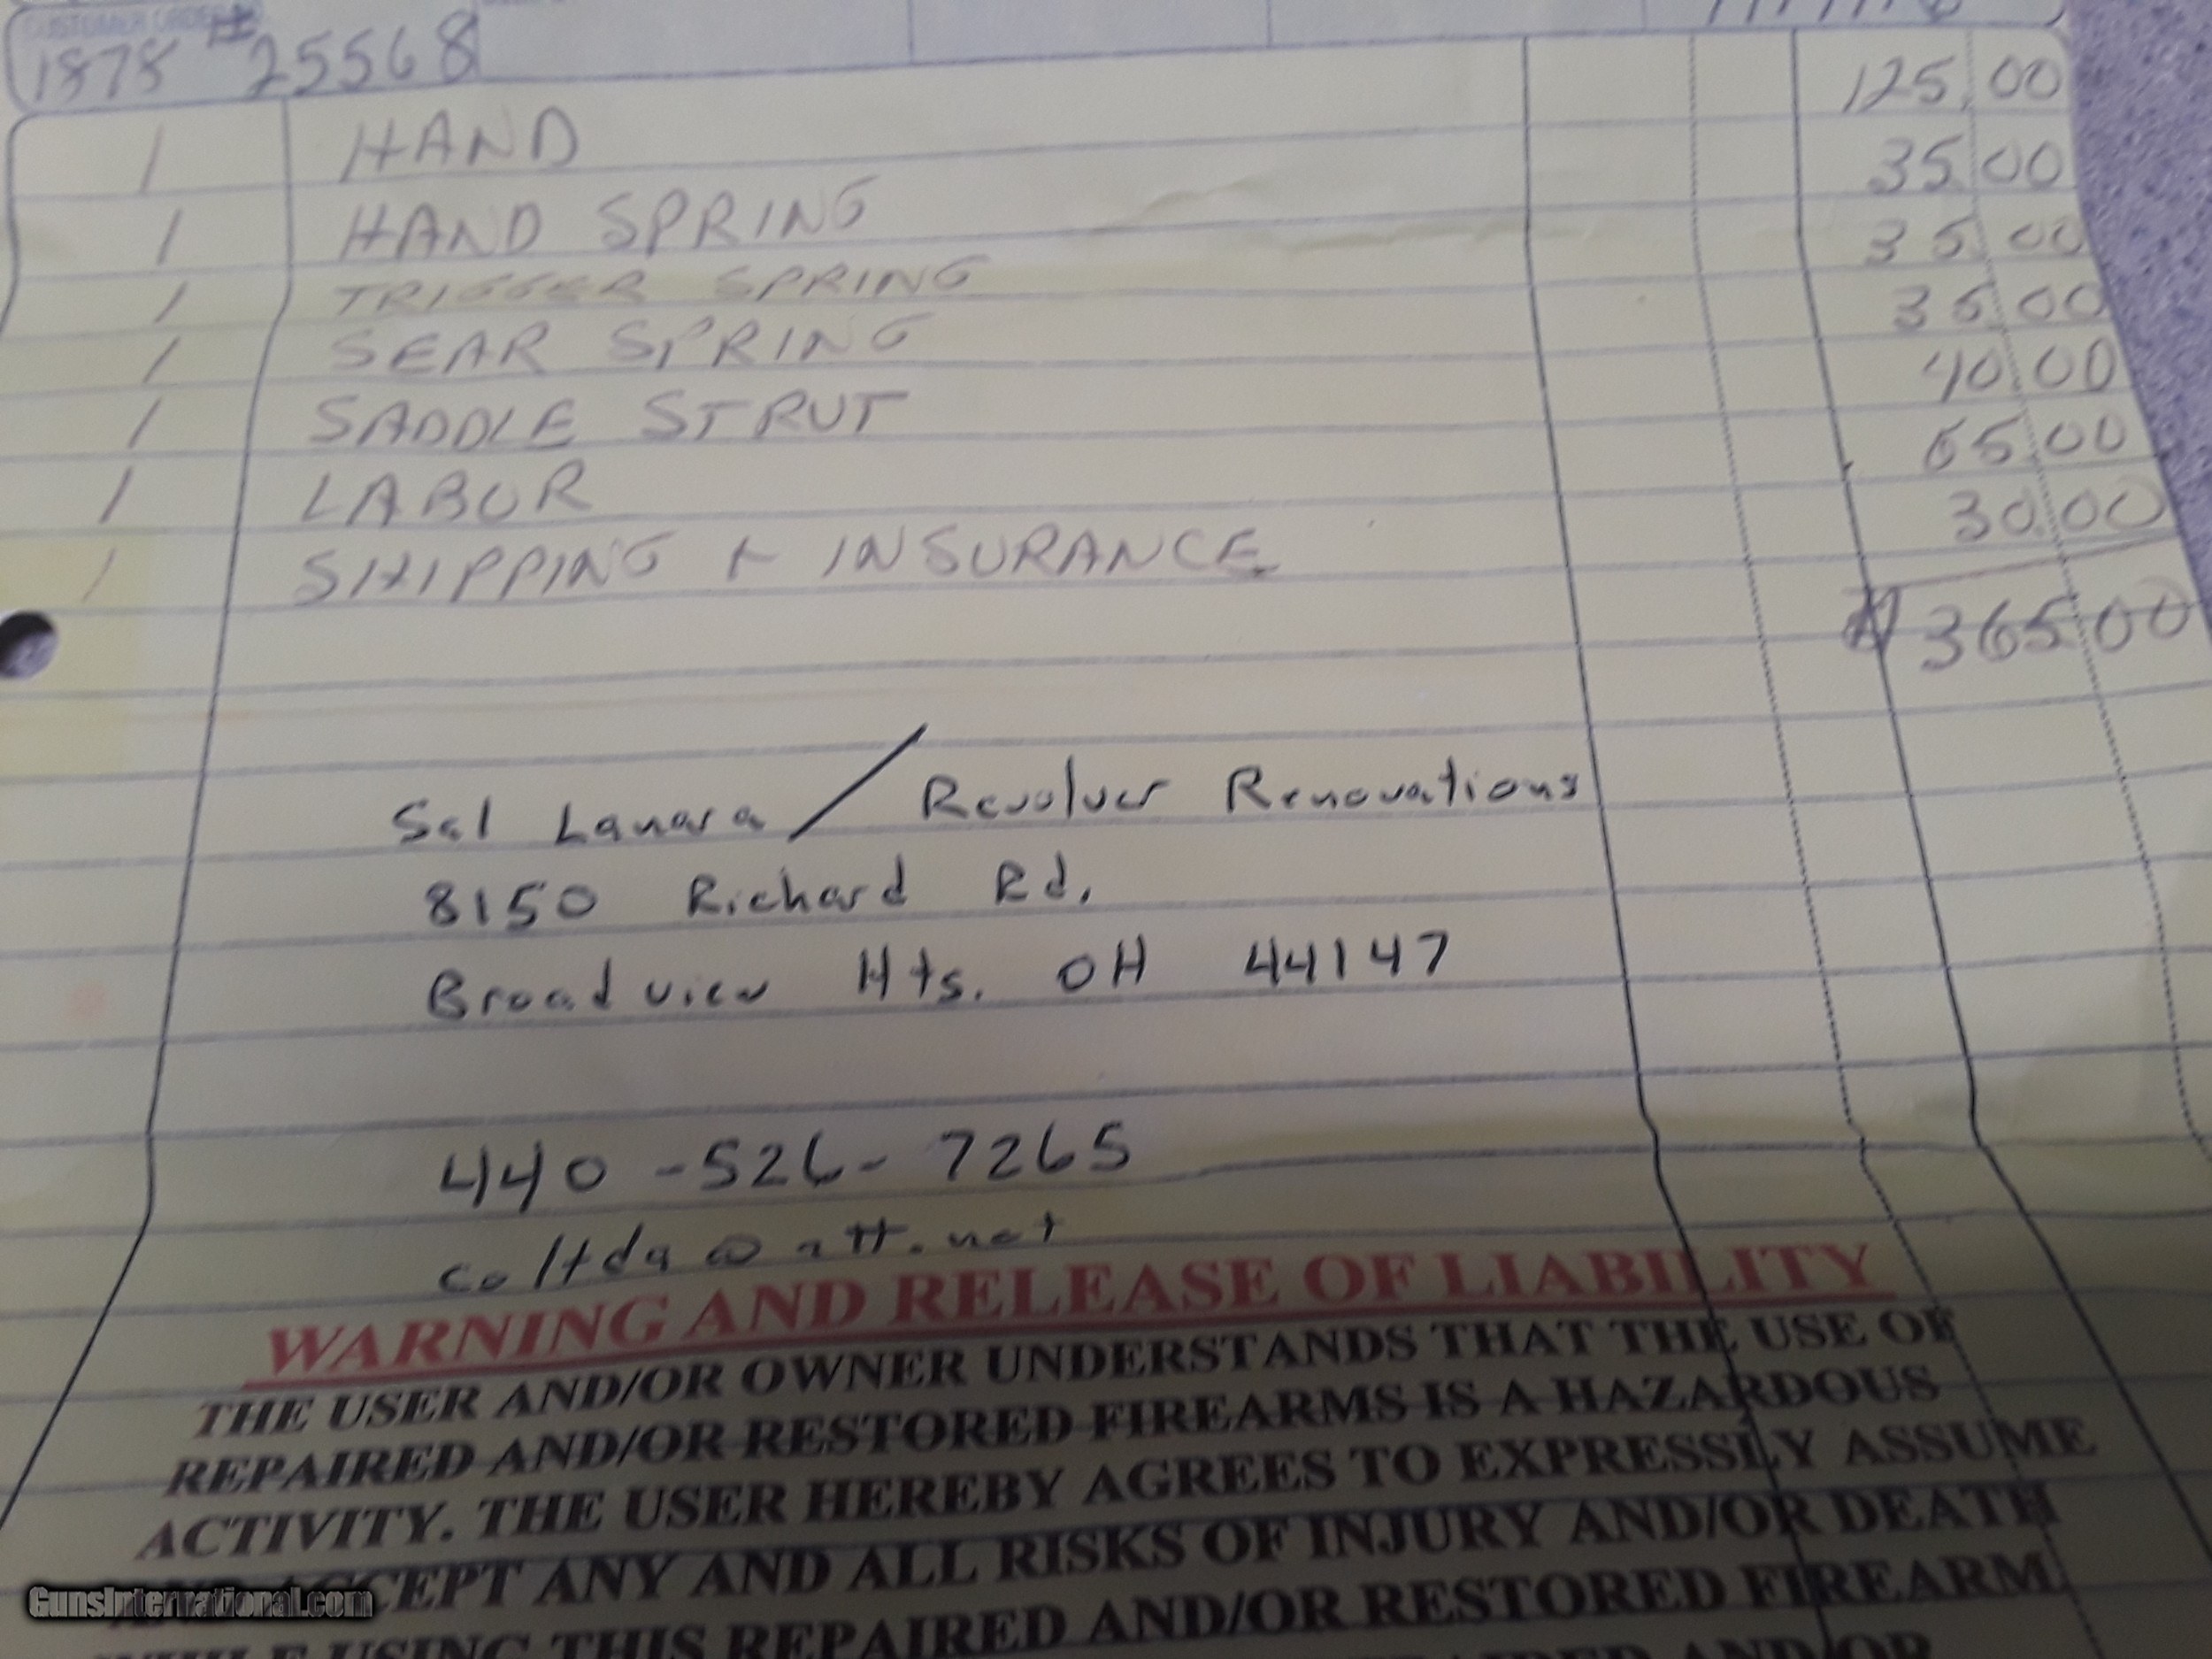 CUSTOMER ORDER
1878 # 25568
1 HAND 125.00
1 HAND SPRING 35.00
1 TRIGGER SPRING 35.00
1 SEAR SPRING 35.00
1 SADDLE STRUT 40.00
1 LABOR 65.00
1 SHIPPING + INSURANCE 30.00
$365.00
Sal Lanara / Revolver Renovations
8150 Richard Rd.
Broadview Hts. OH 44147
440-526-7265
coltda@att.net
WARNING AND RELEASE OF LIABILITY
THE USER AND/OR OWNER UNDERSTANDS THAT THE USE OF
REPAIRED AND/OR RESTORED FIREARMS IS A HAZARDOUS
ACTIVITY. THE USER HEREBY AGREES TO EXPRESSLY ASSUME
ACCEPT ANY AND ALL RISKS OF INJURY AND/OR DEATH
WHILE USING THIS REPAIRED AND/OR RESTORED FIREARM
AND/OR
GunsInternational.com